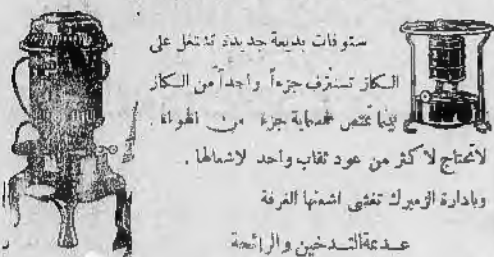 ستوفات بديعة جديدة تشتغل على
الكاز تستنزف جزءاً واحداً من الكاز
بينما تمتص خمسماية جزء من الهواء .
لاتحتاج لاكثر من عود ثقاب واحد لاشعالها .
وبادارة الزمبرك تغشى اشعتها الغرفة
عديمة التدخين والرائحة